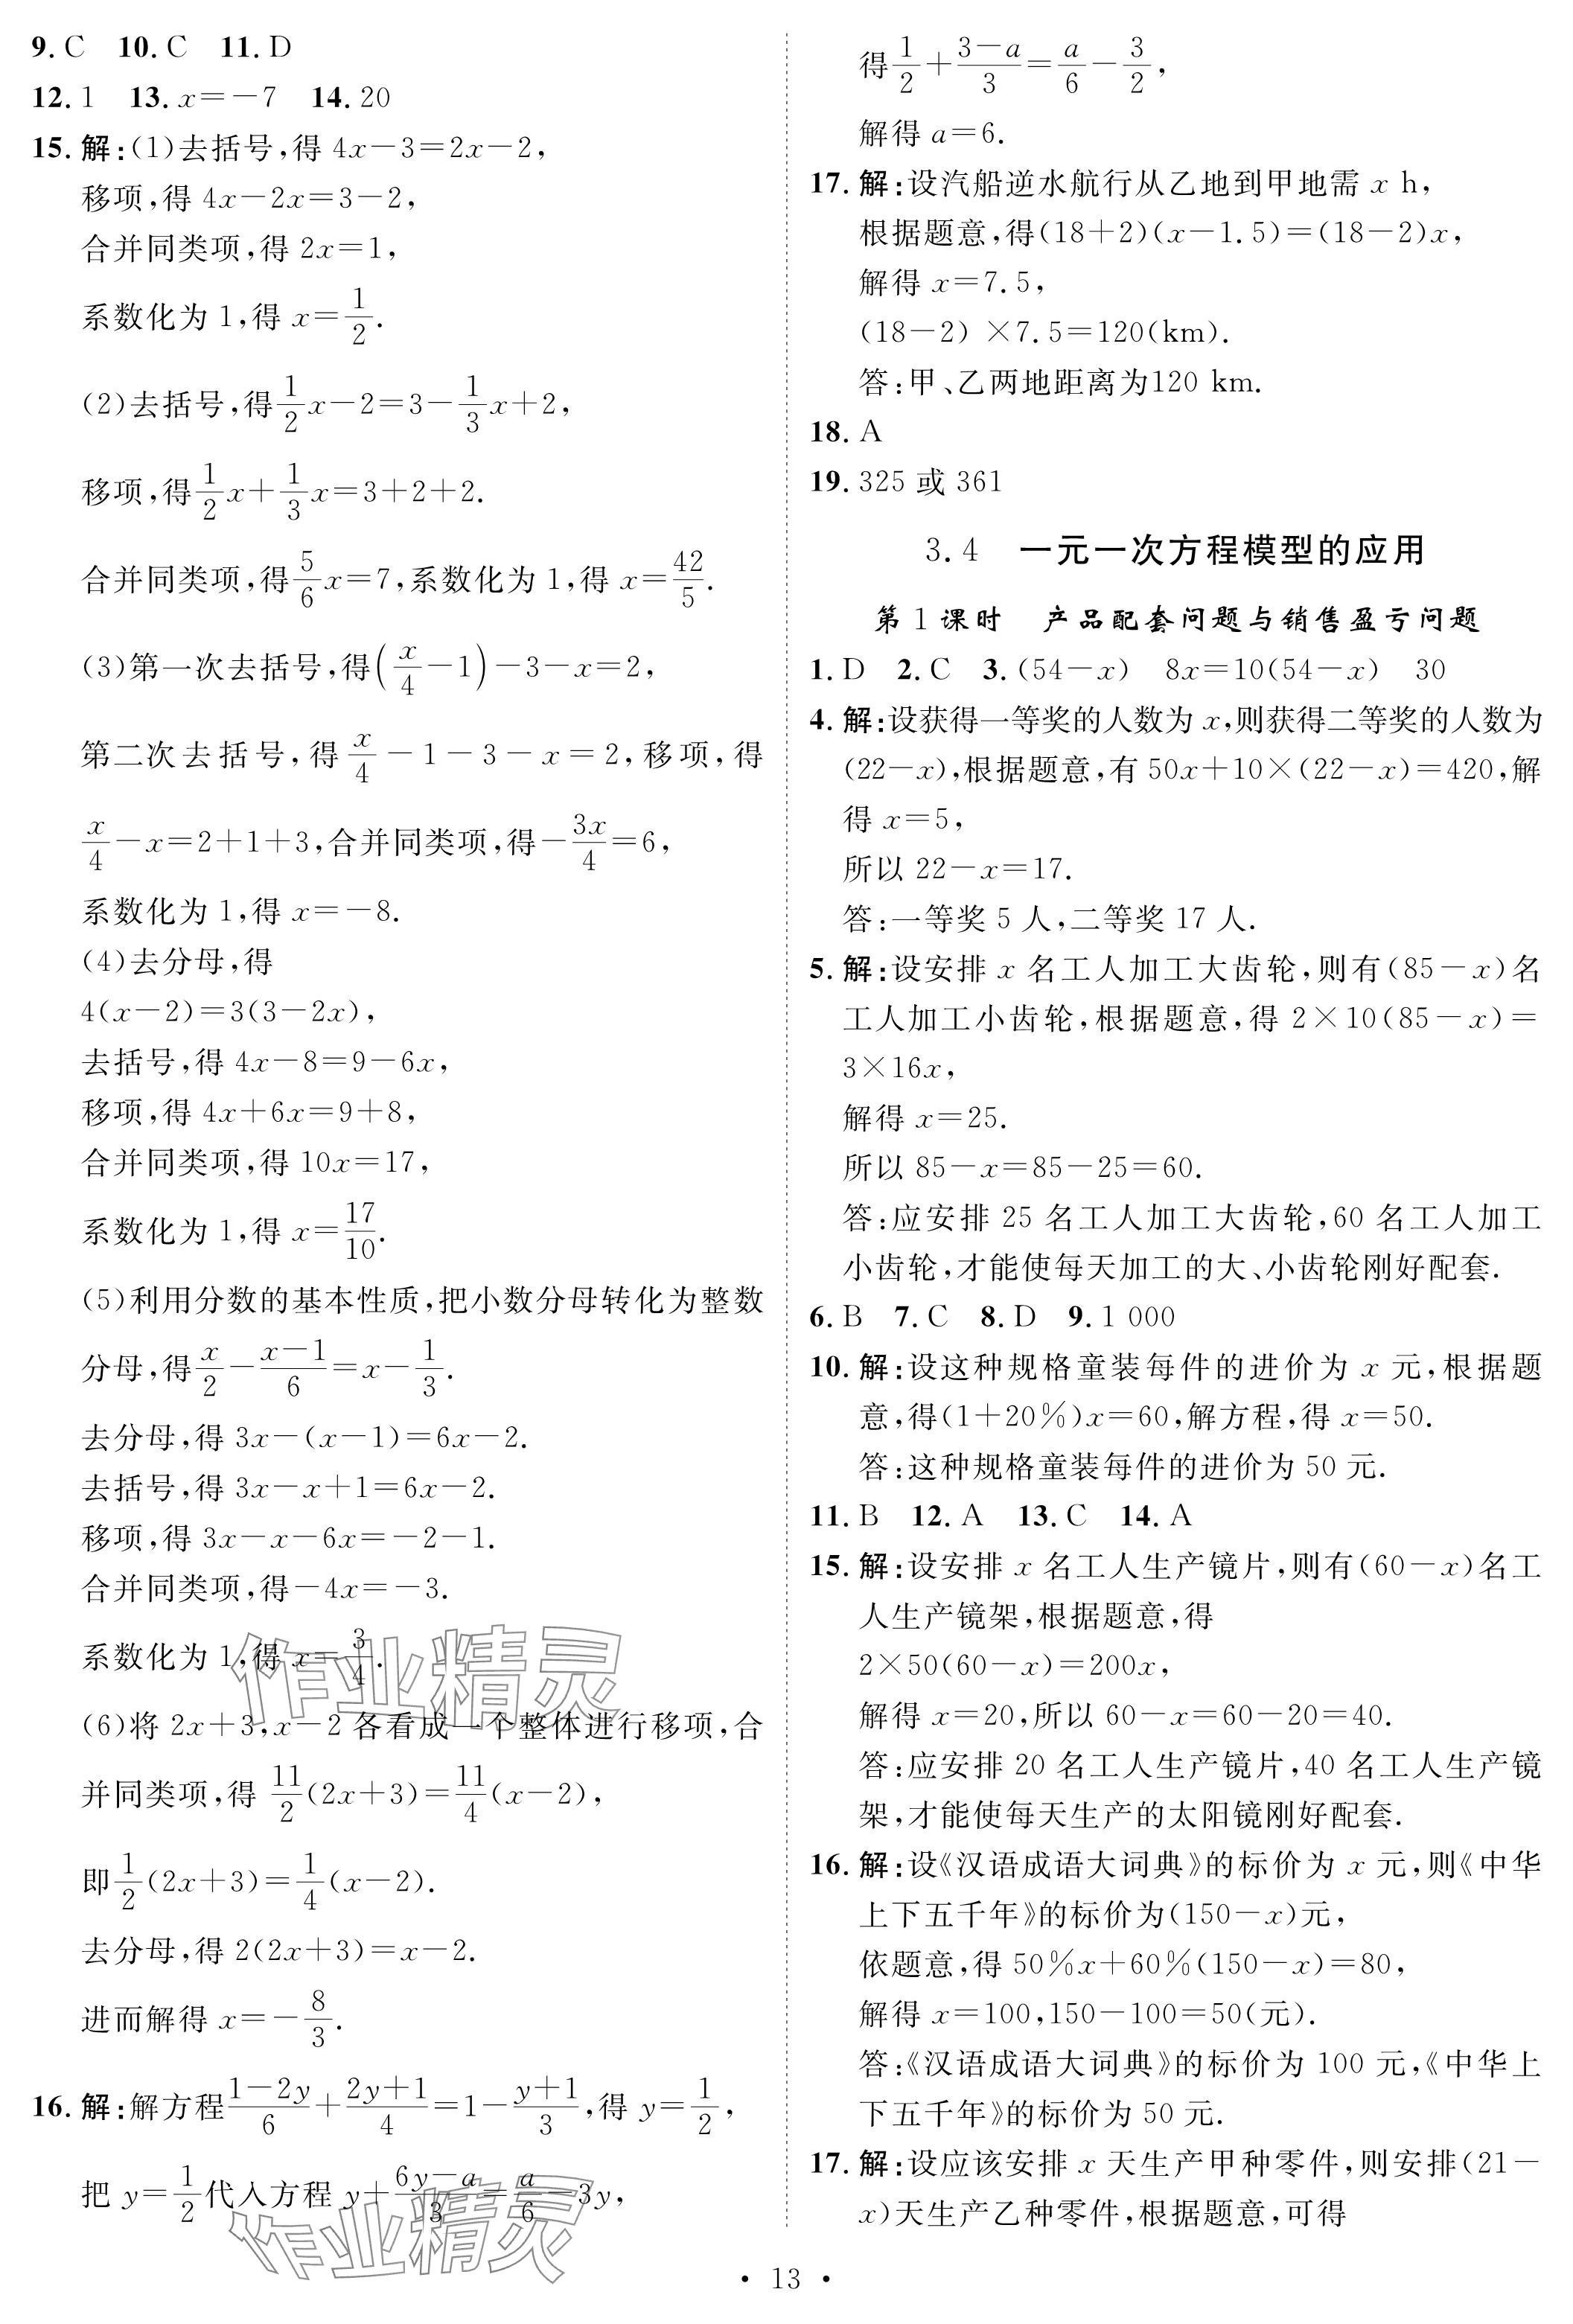 9. C　10. C　11. D
12. 1　13. x=-7　14. 20
15. 解:(1)去括号,得 4x-3=2x-2,
移项,得 4x-2x=3-2,
合并同类项,得 2x=1,
系数化为 1,得 x=1/2.
(2)去括号,得1/2x-2=3-1/3x+2,
移项,得1/2x+1/3x=3+2+2.
合并同类项,得5/6x=7,系数化为 1,得 x=42/5.
(3)第一次去括号,得(x/4-1)-3-x=2,
第二次去括号,得x/4-1-3-x=2,移项,得
x/4-x=2+1+3,合并同类项,得-3x/4=6,
系数化为 1,得 x=-8.
(4)去分母,得
4(x-2)=3(3-2x),
去括号,得 4x-8=9-6x,
移项,得 4x+6x=9+8,
合并同类项,得 10x=17,
系数化为 1,得 x=17/10.
(5)利用分数的基本性质,把小数分母转化为整数
分母,得x/2-(x-1)/6=x-1/3.
去分母,得 3x-(x-1)=6x-2.
去括号,得 3x-x+1=6x-2.
移项,得 3x-x-6x=-2-1.
合并同类项,得-4x=-3.
系数化为 1,得 x=3/4.
(6)将 2x+3,x-2 各看成一个整体进行移项,合
并同类项,得 11/2(2x+3)=11/4(x-2),
即1/2(2x+3)=1/4(x-2).
去分母,得 2(2x+3)=x-2.
进而解得 x=-8/3.
16. 解:解方程(1-2y)/6+(2y+1)/4=1-(y+1)/3,得 y=1/2,
把 y=1/2代入方程 y+(6y-a)/3=a/6-3y,
得1/2+(3-a)/3=a/6-3/2,
解得 a=6.
17. 解:设汽船逆水航行从乙地到甲地需 x h,
根据题意,得(18+2)(x-1.5)=(18-2)x,
解得 x=7.5,
(18-2) ×7.5=120(km).
答:甲、乙两地距离为120 km.
18. A
19. 325 或 361
3.4　一元一次方程模型的应用
第 1 课时　产品配套问题与销售盈亏问题
1. D　2. C　3. (54-x)　8x=10(54-x)　30
4. 解:设获得一等奖的人数为 x,则获得二等奖的人数为
(22-x),根据题意,有 50x+10×(22-x)=420,解
得 x=5,
所以 22-x=17.
答:一等奖 5 人,二等奖 17 人.
5. 解:设安排 x 名工人加工大齿轮,则有(85-x)名
工人加工小齿轮,根据题意,得 2×10(85-x)=
3×16x,
解得 x=25.
所以 85-x=85-25=60.
答:应安排 25 名工人加工大齿轮,60 名工人加工
小齿轮,才能使每天加工的大、小齿轮刚好配套.
6. B　7. C　8. D　9. 1 000
10. 解:设这种规格童装每件的进价为 x 元,根据题
意,得(1+20%)x=60,解方程,得 x=50.
答:这种规格童装每件的进价为 50 元.
11. B　12. A　13. C　14. A
15. 解:设安排 x 名工人生产镜片,则有(60-x)名工
人生产镜架,根据题意,得
2×50(60-x)=200x,
解得 x=20,所以 60-x=60-20=40.
答:应安排 20 名工人生产镜片,40 名工人生产镜
架,才能使每天生产的太阳镜刚好配套.
16. 解:设《汉语成语大词典》的标价为 x 元,则《中华
上下五千年》的标价为(150-x)元,
依题意,得 50%x+60%(150-x)=80,
解得 x=100,150-100=50(元).
答:《汉语成语大词典》的标价为 100 元,《中华上
下五千年》的标价为 50 元.
17. 解:设应该安排 x 天生产甲种零件,则安排(21-
x)天生产乙种零件,根据题意,可得
作业精灵
作业精灵
• 13 •